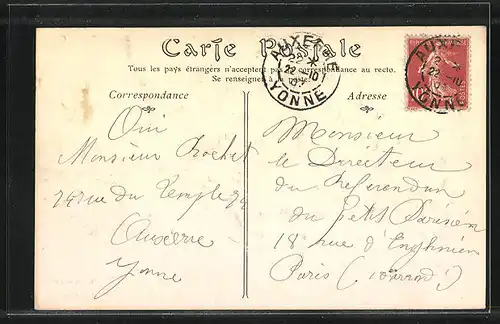 Carte Postale
Tous les pays étrangers n'acceptent pas la correspondance au recto.
Se renseigner à la poste.
Correspondance
Adresse
AUXERRE
22 *
22 - 10
YONNE
AUXE
22 - 10
YONNE
Oui
Monsieur Rochet
24 rue du Temple 24
Auxerre
Yonne
Monsieur
le Directeur
du Referendum
du Petit Parisien
18 rue d'Enghien
Paris (